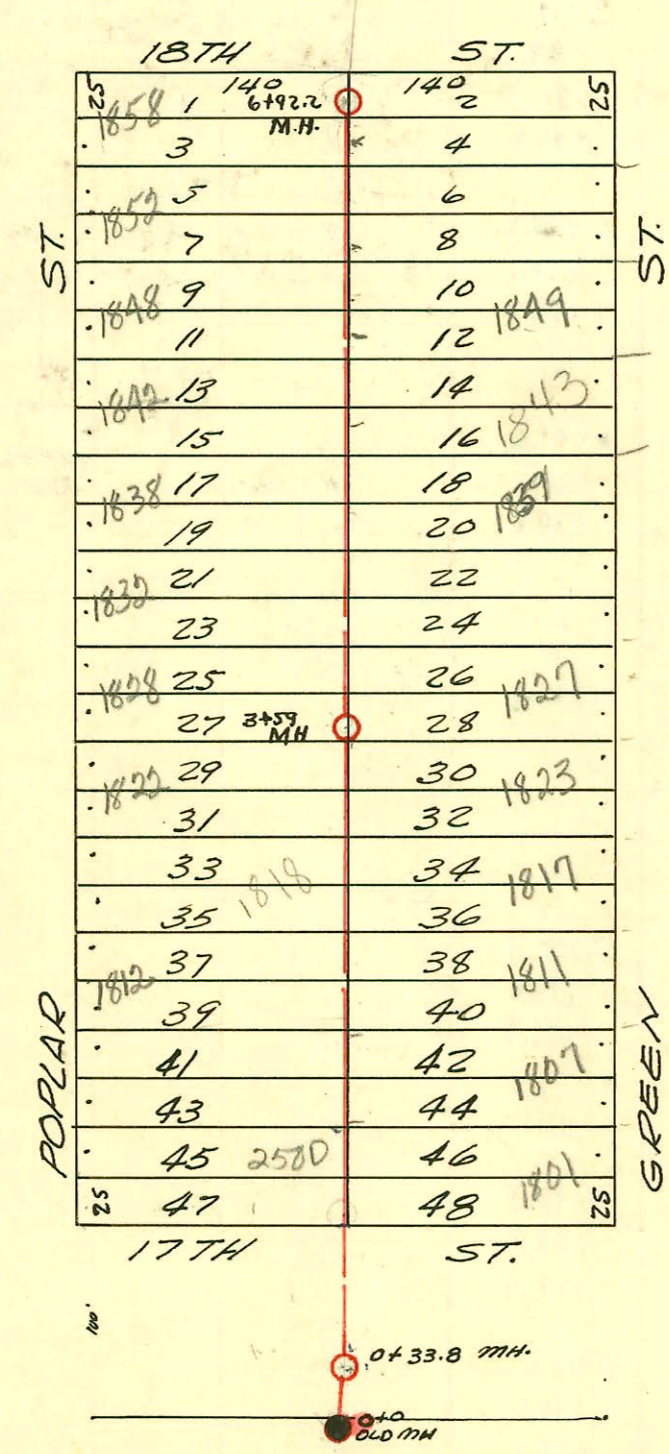 18TH ST.
25 140 140 25
1858 1 6+92.2 2
M.H.
3 4
1852 5 6
7 8
ST. ST.
1848 9 10 1849
11 12
1842 13 14 1843
15 16
1838 17 18 1839
19 20
1832 21 22
23 24
1828 25 26 1827
27 3+59 28
MH
1822 29 30 1823
31 32
33 1818 34 1817
35 36
1812 37 38 1811
39 40
POPLAR GREEN
41 42 1807
43 44
45 2580 46
1801
25 47 48 25
17TH ST.
100'
0+33.8 MH.
0+0
OLD MH